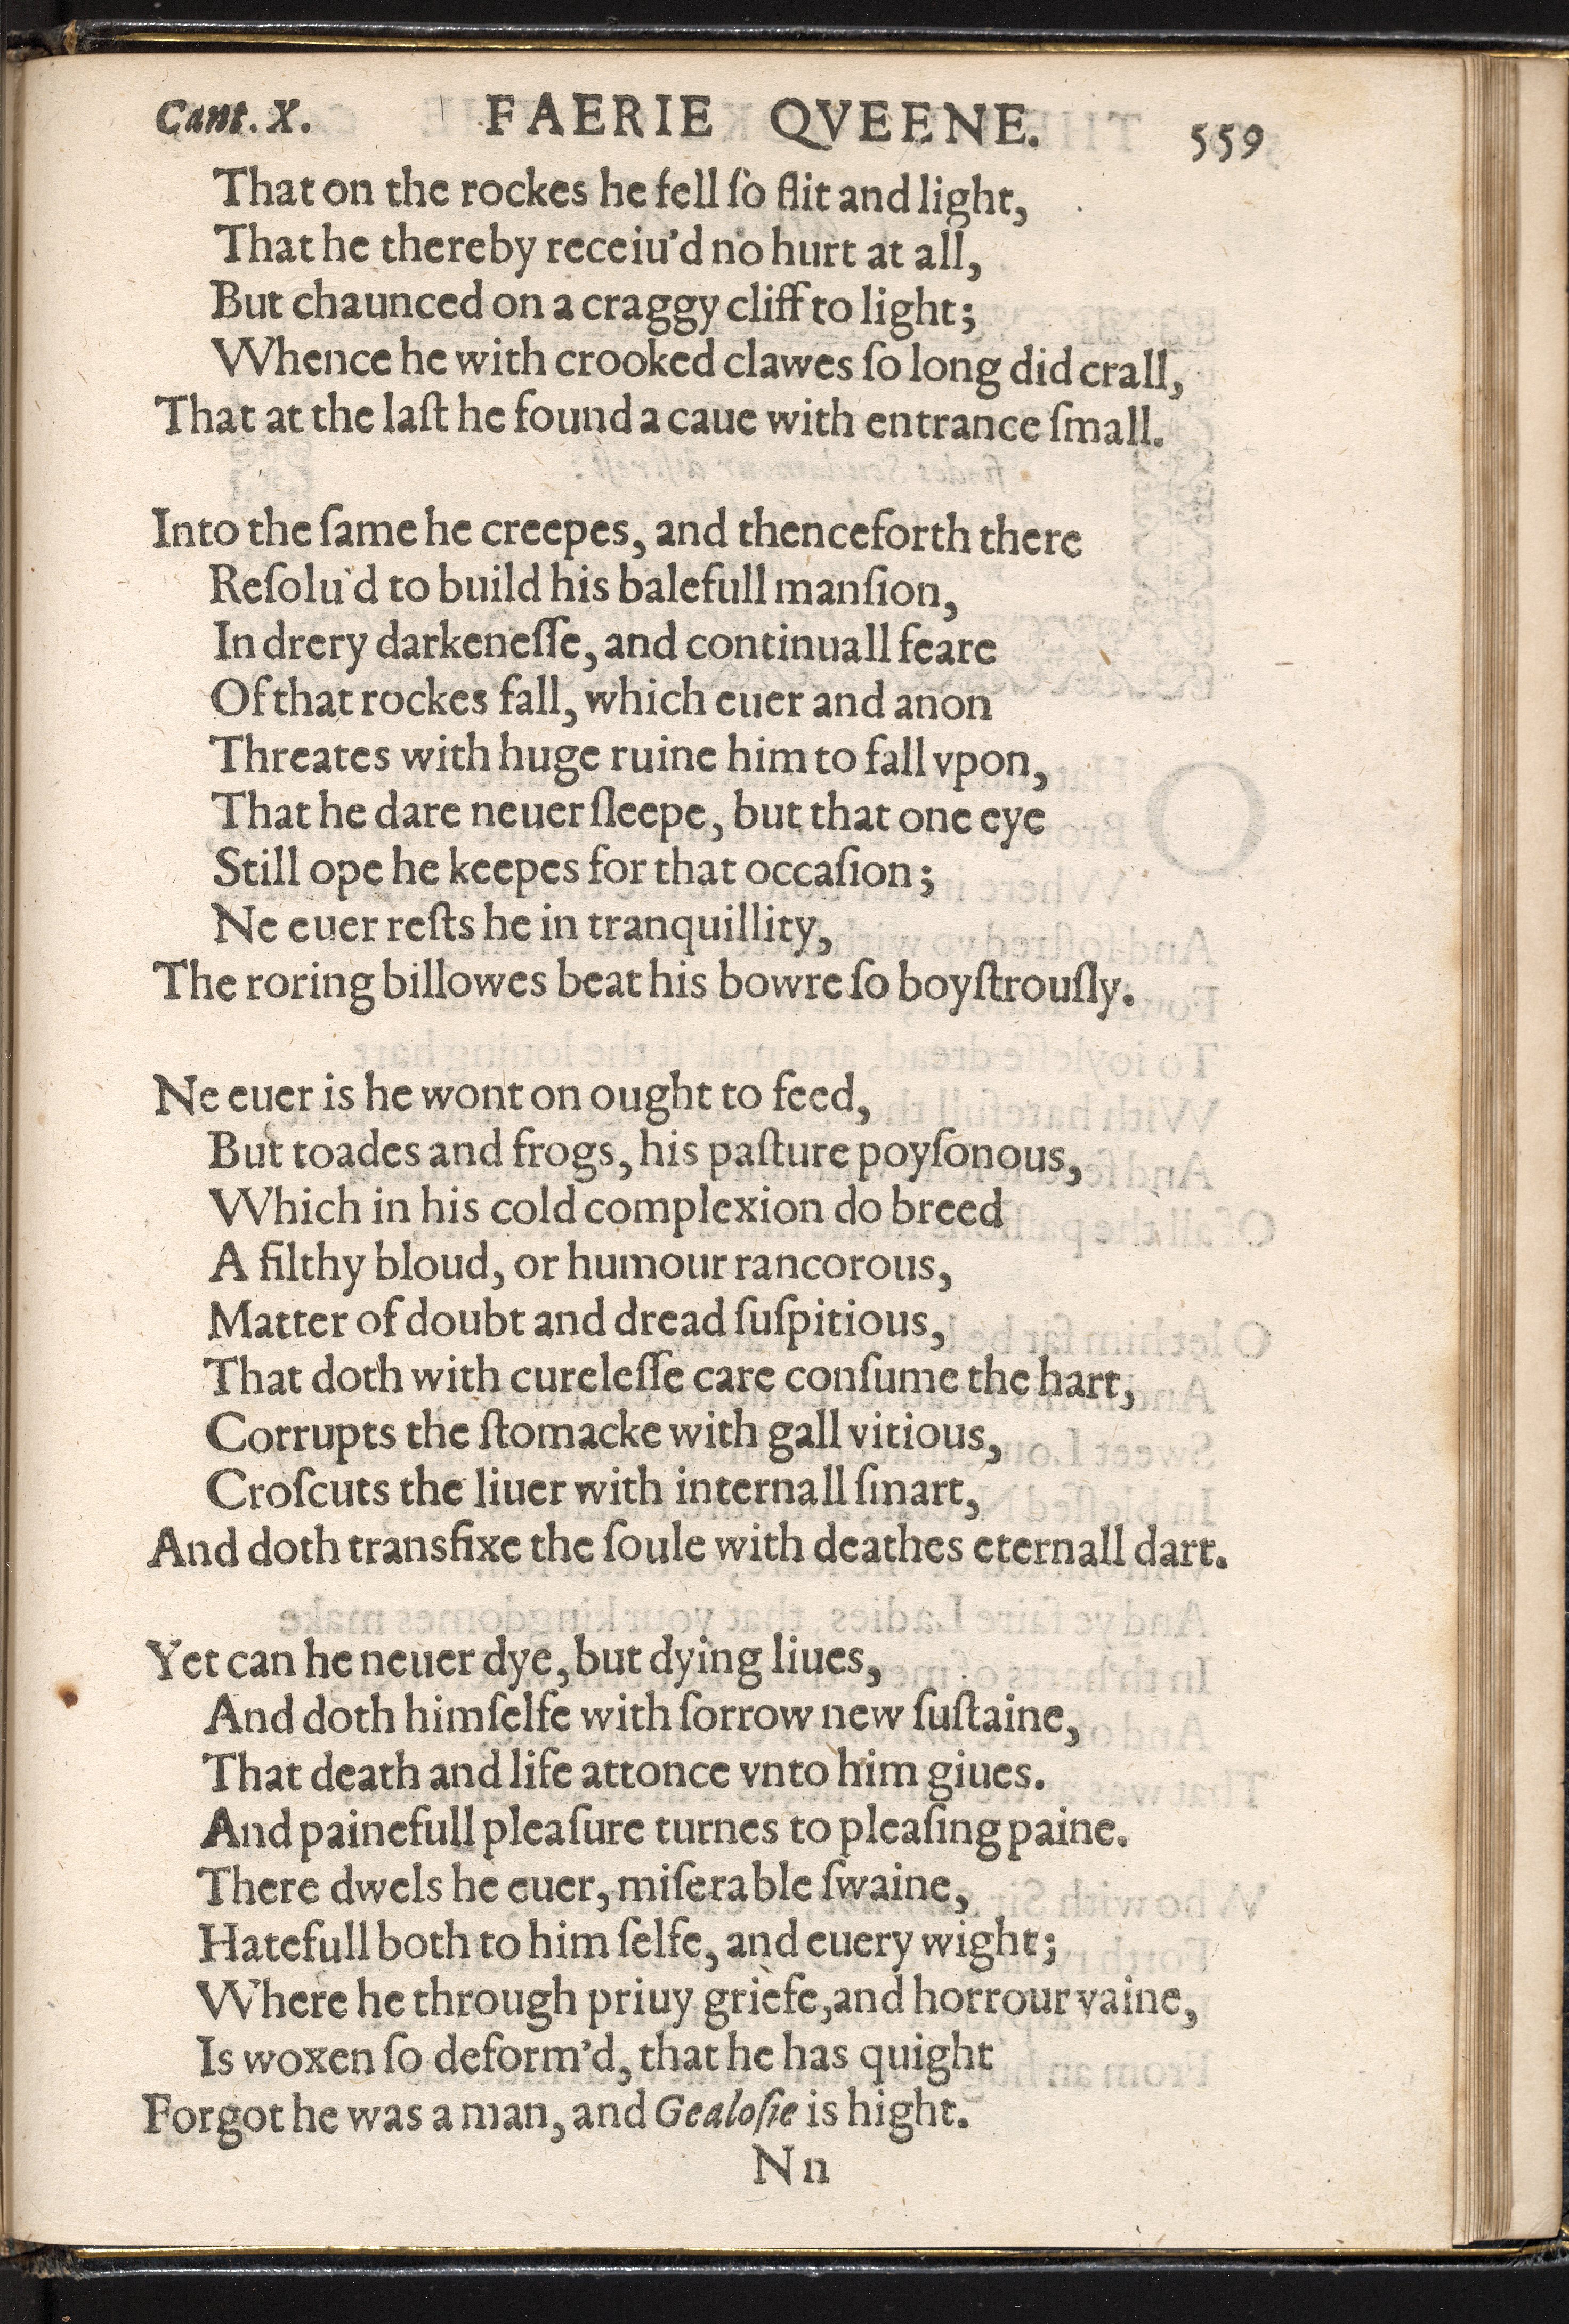 Cant. X. FAERIE QVEENE. 559
That on the rockes he fell ſo flit and light,
That he thereby receiu'd no hurt at all,
But chaunced on a craggy cliff to light;
Whence he with crooked clawes ſo long did crall,
That at the laſt he found a caue with entrance ſmall.
Into the ſame he creepes, and thenceforth there
Reſolu'd to build his balefull manſion,
In drery darkeneſſe, and continuall feare
Of that rockes fall, which euer and anon
Threates with huge ruine him to fall vpon,
That he dare neuer ſleepe, but that one eye
Still ope he keepes for that occaſion;
Ne euer reſts he in tranquillity,
The roring billowes beat his bowre ſo boyſtrouſly.
Ne euer is he wont on ought to feed,
But toades and frogs, his paſture poyſonous,
Which in his cold complexion do breed
A filthy bloud, or humour rancorous,
Matter of doubt and dread ſuſpitious,
That doth with cureleſſe care conſume the hart,
Corrupts the ſtomacke with gall vitious,
Croſcuts the liuer with internall ſmart,
And doth transfixe the ſoule with deathes eternall dart.
Yet can he neuer dye, but dying liues,
And doth himſelfe with ſorrow new ſuſtaine,
That death and life attonce vnto him giues.
And painefull pleaſure turnes to pleaſing paine.
There dwels he euer, miſerable ſwaine,
Hatefull both to him ſelfe, and euery wight;
Where he through priuy griefe, and horrour vaine,
Is woxen ſo deform'd, that he has quight
Forgot he was a man, and Gealoſie is hight.
Nn